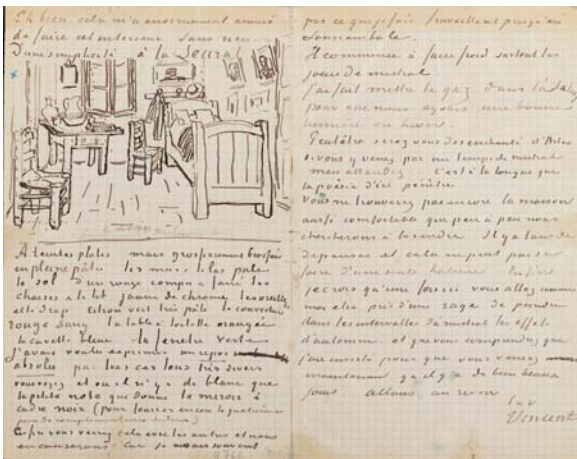 Eh bien cela m'a enormement amusé
de faire cet interieur sans rien.
D'une simplicité à la Seurat
A teintes plates mais grossierement brossée
en pleine pâte les murs lilas pale
le sol d'un rouge rompu & fané les
chaises & le lit jaune de chrome les oreillers
et le drap citron vert très pâle la couverture
rouge sang la table à toilette orangée
la cuvette bleue la fenetre verte
J'avais voulu exprimer un repos
absolu par tous ces tons très divers
vous voyez et où il n'y a de blanc que
la petite note que donne le miroir à
cadre noir (pour fourrer encore la quatrième
paire de complementaires dedans)
Enfin vous verrez cela avec les autres et nous
en causerons car je ne sais souvent
pas ce que je fais travaillant presqu'en
somnambule.
Il commence à faire froid surtout les
jours de mistral.
J'ai fait mettre le gaz dans l'atelier
pour que nous ayons une bonne
lumière en hiver.
Peutêtre serez vous desenchanté d'Arles
si vous y venez par un temps de mistral
mais attendez.. C'est à la longue que
la poésie d'ici penètre
Vous ne trouverez pas encore la maison
aussi comfortable que peu à peu nous
chercherons à la rendre. Il y a tant de
depenses et cela ne peut pas se
faire d'une seule haleine. Enfin
je crois qu'une fois ici vous allez comme
moi etre pris d'une rage de peindre
dans les intervalles du mistral les effets
d'automne et que vous comprendrez que
j'ai insisté pour que vous veniez
maintenant qu'il y a de bien beaux
jours allons au revoir
Vincent